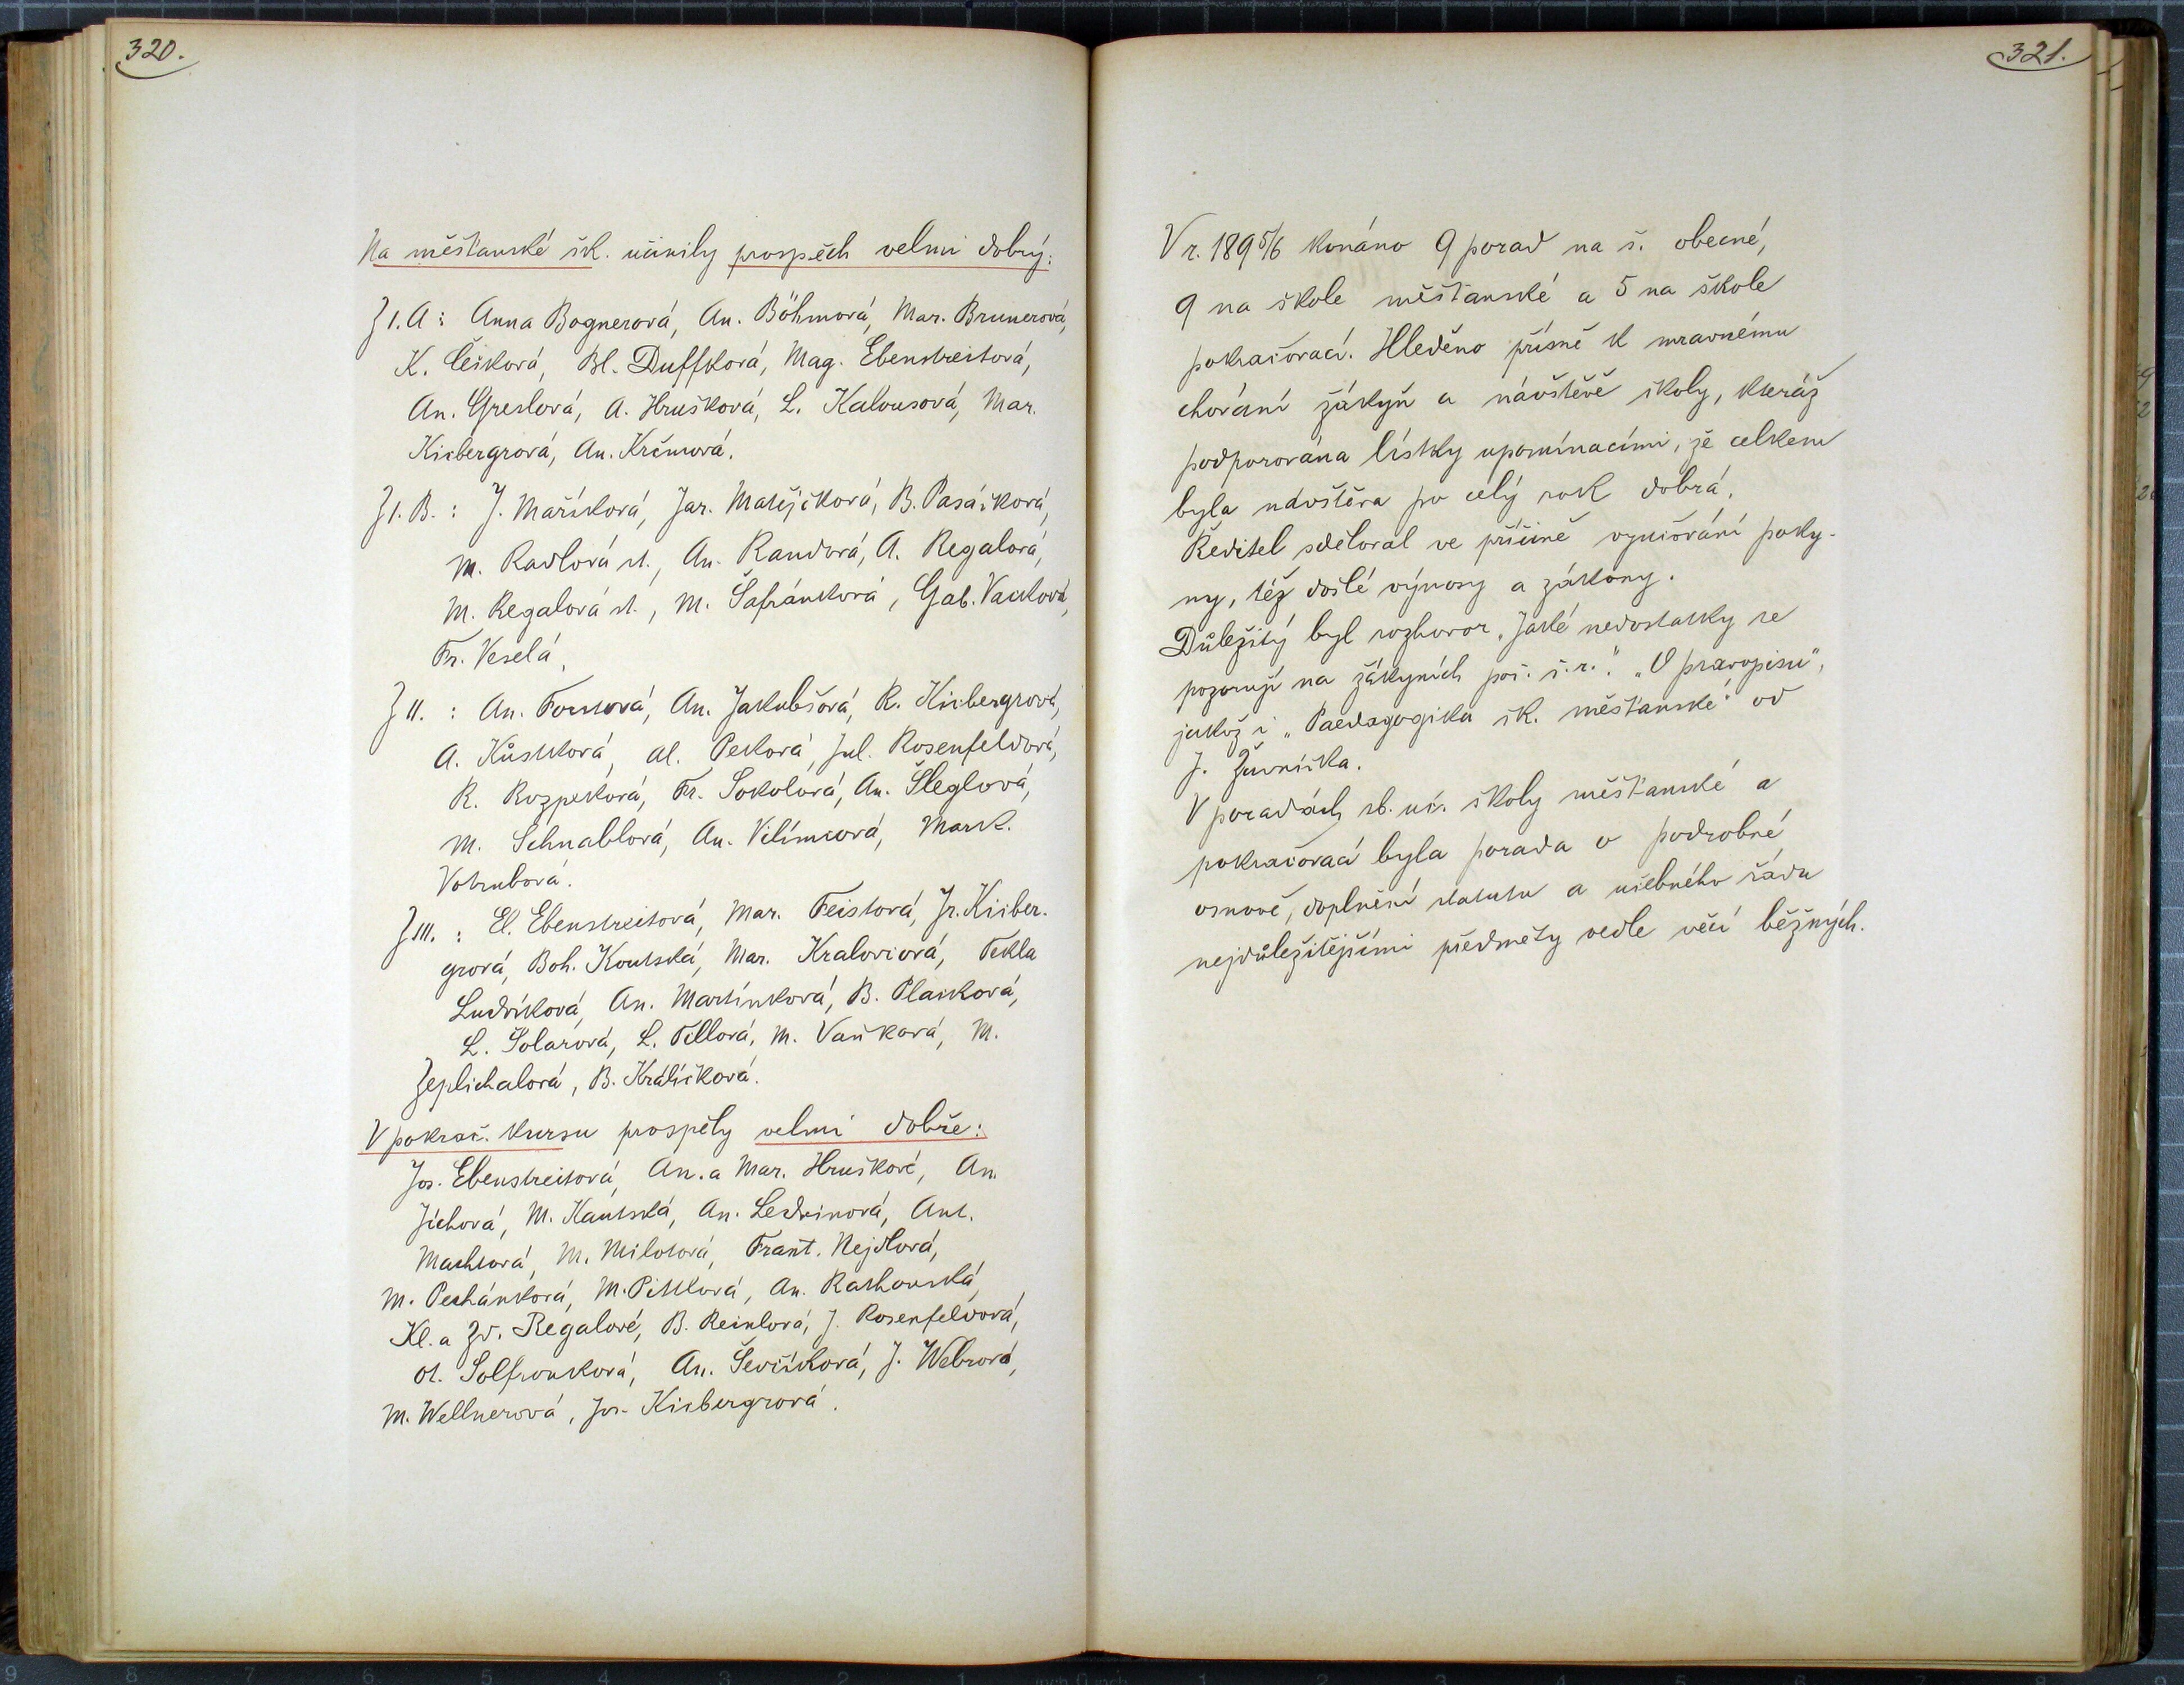 320.
Na měšťanské šk. učinily prospěch velmi dobrý:
Z I. A: Anna Bognerová, An. Böhmová, Mar. Brunerová,
K. Češková, Bl. Duffková, Mag. Ebenstreitová,
An. Greslová, A. Hrušková, L. Kalousová, Mar.
Kisbergrová, An. Krčmová.
Z I. B.: J. Maříková, Jar. Matějíčková, B. Pasáčková,
M. Radlová st., An. Randová, A. Regalová,
M. Regalová st., M. Šafránková, Gab. Vacková,
Fr. Veselá,
Z II.: An. Forstová, An. Jakubšová, R. Kisbergrová,
A. Kůstková, Al. Peková, Jul. Rosenfeldová,
R. Rozpeková, Fr. Sokolová, An. Šleglová,
M. Schnablová, An. Vilímcová, Mark.
Votrubová.
Z III.: El. Ebenstreitová, Mar. Feistová, Jr. Kisber-
grová, Boh. Koutská, Mar. Kraloviová, Tekla
Ludvíková, An. Martínková, B. Plasková,
L. Solarová, L. Tillová, M. Vaňková, M.
Zeplichalová, B. Králíčková.
V pokrač. kursu prospěly velmi dobře:
Jos. Ebenstreitová, An. a Mar. Hruškové, An.
Jíchová, M. Kautská, An. Ledvinová, Ant.
Machtová, M. Milotová, Frant. Nejdlová,
M. Pechánková, M. Pittlová, An. Rathouská,
Kl. a Zd. Regalové, B. Reinlová, J. Rosenfeldová,
Ot. Solfronková, An. Ševčíková, J. Webrová,
M. Wellnerová, Jos. Kisbergrová.
321.
V r. 1895/6 konáno 9 porad na š. obecné,
9 na škole měšťanské a 5 na škole
pokračovací. Hleděno přísně k mravnému
chování žákyň a návštěvě školy, kteráž
podporována lístky upomínacími, že celkem
byla návštěva po celý rok dobrá.
Ředitel sděloval ve příčině vyučování poky-
ny, též došlé výnosy a zákony.
Důležitý byl rozhovor „Jaké nedostatky se
pozorují na žákyních poč. š. r.". „O pravopisu",
jakož i „Paedagogika šk. měšťanské" od
J. Žurníčka.
V poradách sb. uč. školy měšťanské a
pokračovací byla porada o podrobné
osnově, doplnění statutu a učebného řádu
nejdůležitějšími předměty vedle věcí běžných.